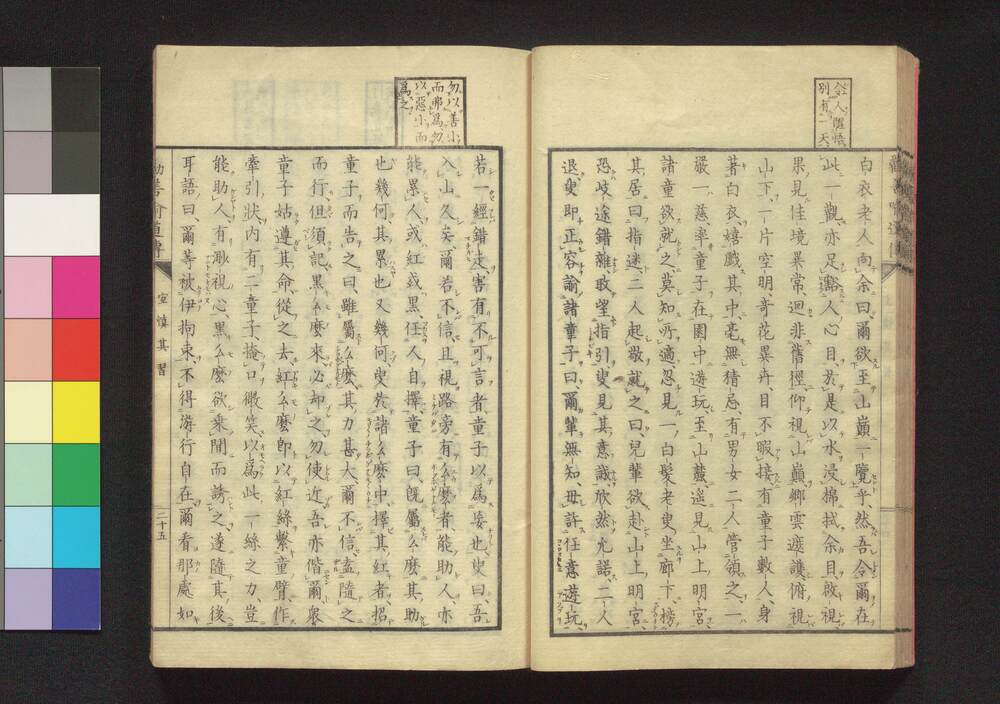 令人醒悟
別有一天
白衣老人向余曰、爾欲至山巔一覽乎、然吾令爾在
此一觀、亦足豁人心目、於是以水浸棉拭余目、啟視
果見佳境異常、迥非舊徑、仰視山巔、卿雲遮護、俯視
山下、一片空明、奇花異卉、目不暇接、有童子數人、身
著白衣、嬉戲其中、毫無猜忌、有男女二人管領之、一
嚴一慈、率童子在園中遊玩、至山麓、遙見山上明宮、
諸童欲就之、莫知所適、忽見一白髮老叟坐廊下、榜
其居曰指迷、三人起敬就之曰、兒輩欲赴山上明宮、
恐岐途錯雜、敢望指引、叟見其意誠、欣然允諾、二人
退、叟即正容諭諸童子曰、爾輩無知、毋許任意遊玩、
勿以善小
而弗為、勿
以惡小而
為之
若一經錯走、害有不可言者、童子以為妄也、叟曰、吾
入山久矣、爾若不信、且視路旁有么麼者、能助人、亦
能累人、或紅或黑、任人自擇、童子曰、既屬么麼、其助
也幾何、其累也又幾何、叟於諸么麼中、擇其紅者、招
童子而告之曰、雖屬么麼、其力甚大、爾不信、盍隨之
而行、但須記黑么麼來、必却之、勿使近吾、亦偕爾、衆
童子姑遵其命、從之去、紅么麼即以紅絲繫童臂、作
牽引狀、內有二童子、掩口微笑、以為此一絲之力、豈
能助人、有渺視心、黑么麼欲乘間而誘之、遂隨其後、
耳語曰、爾等被伊拘束、不得游行自在、爾看那處如
勸善喻道傳
宜慎其習
二十五